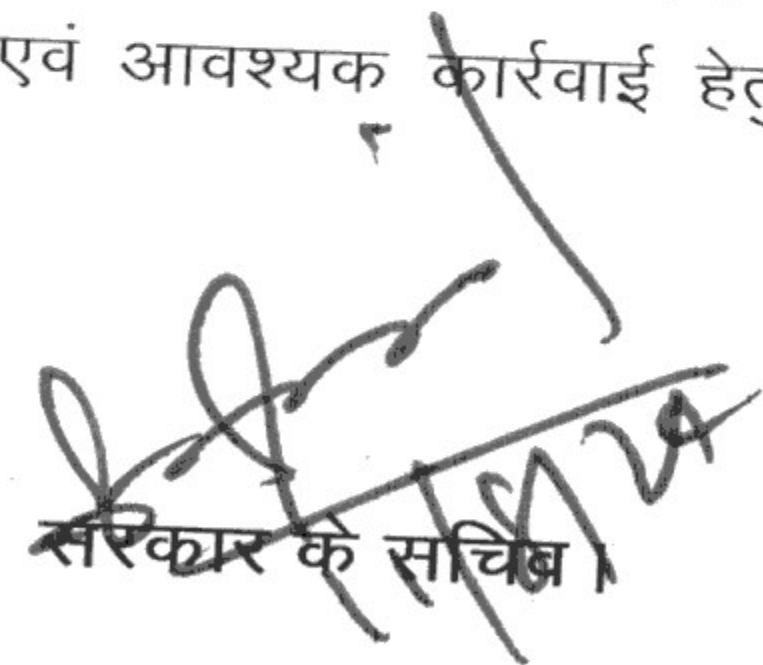 एवं आवश्यक कार्रवाई हेतु
सरकार के सचिव।